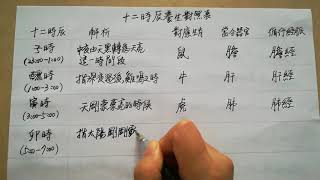 十二時辰養生對照表
十二時辰 解析 對應生肖 當令器官 循行經絡
子時 中夜由天黑轉為天亮 鼠 膽 膽經
(23:00-1:00) 這一時間段
醜時 指 雞鳴之時 牛 肝 肝經
(1:00-3:00)
寅時 天剛 亮的時候 虎 肺 肺經
(3:00-5:00)
卯時 指太陽剛剛
(5:00-7:00)